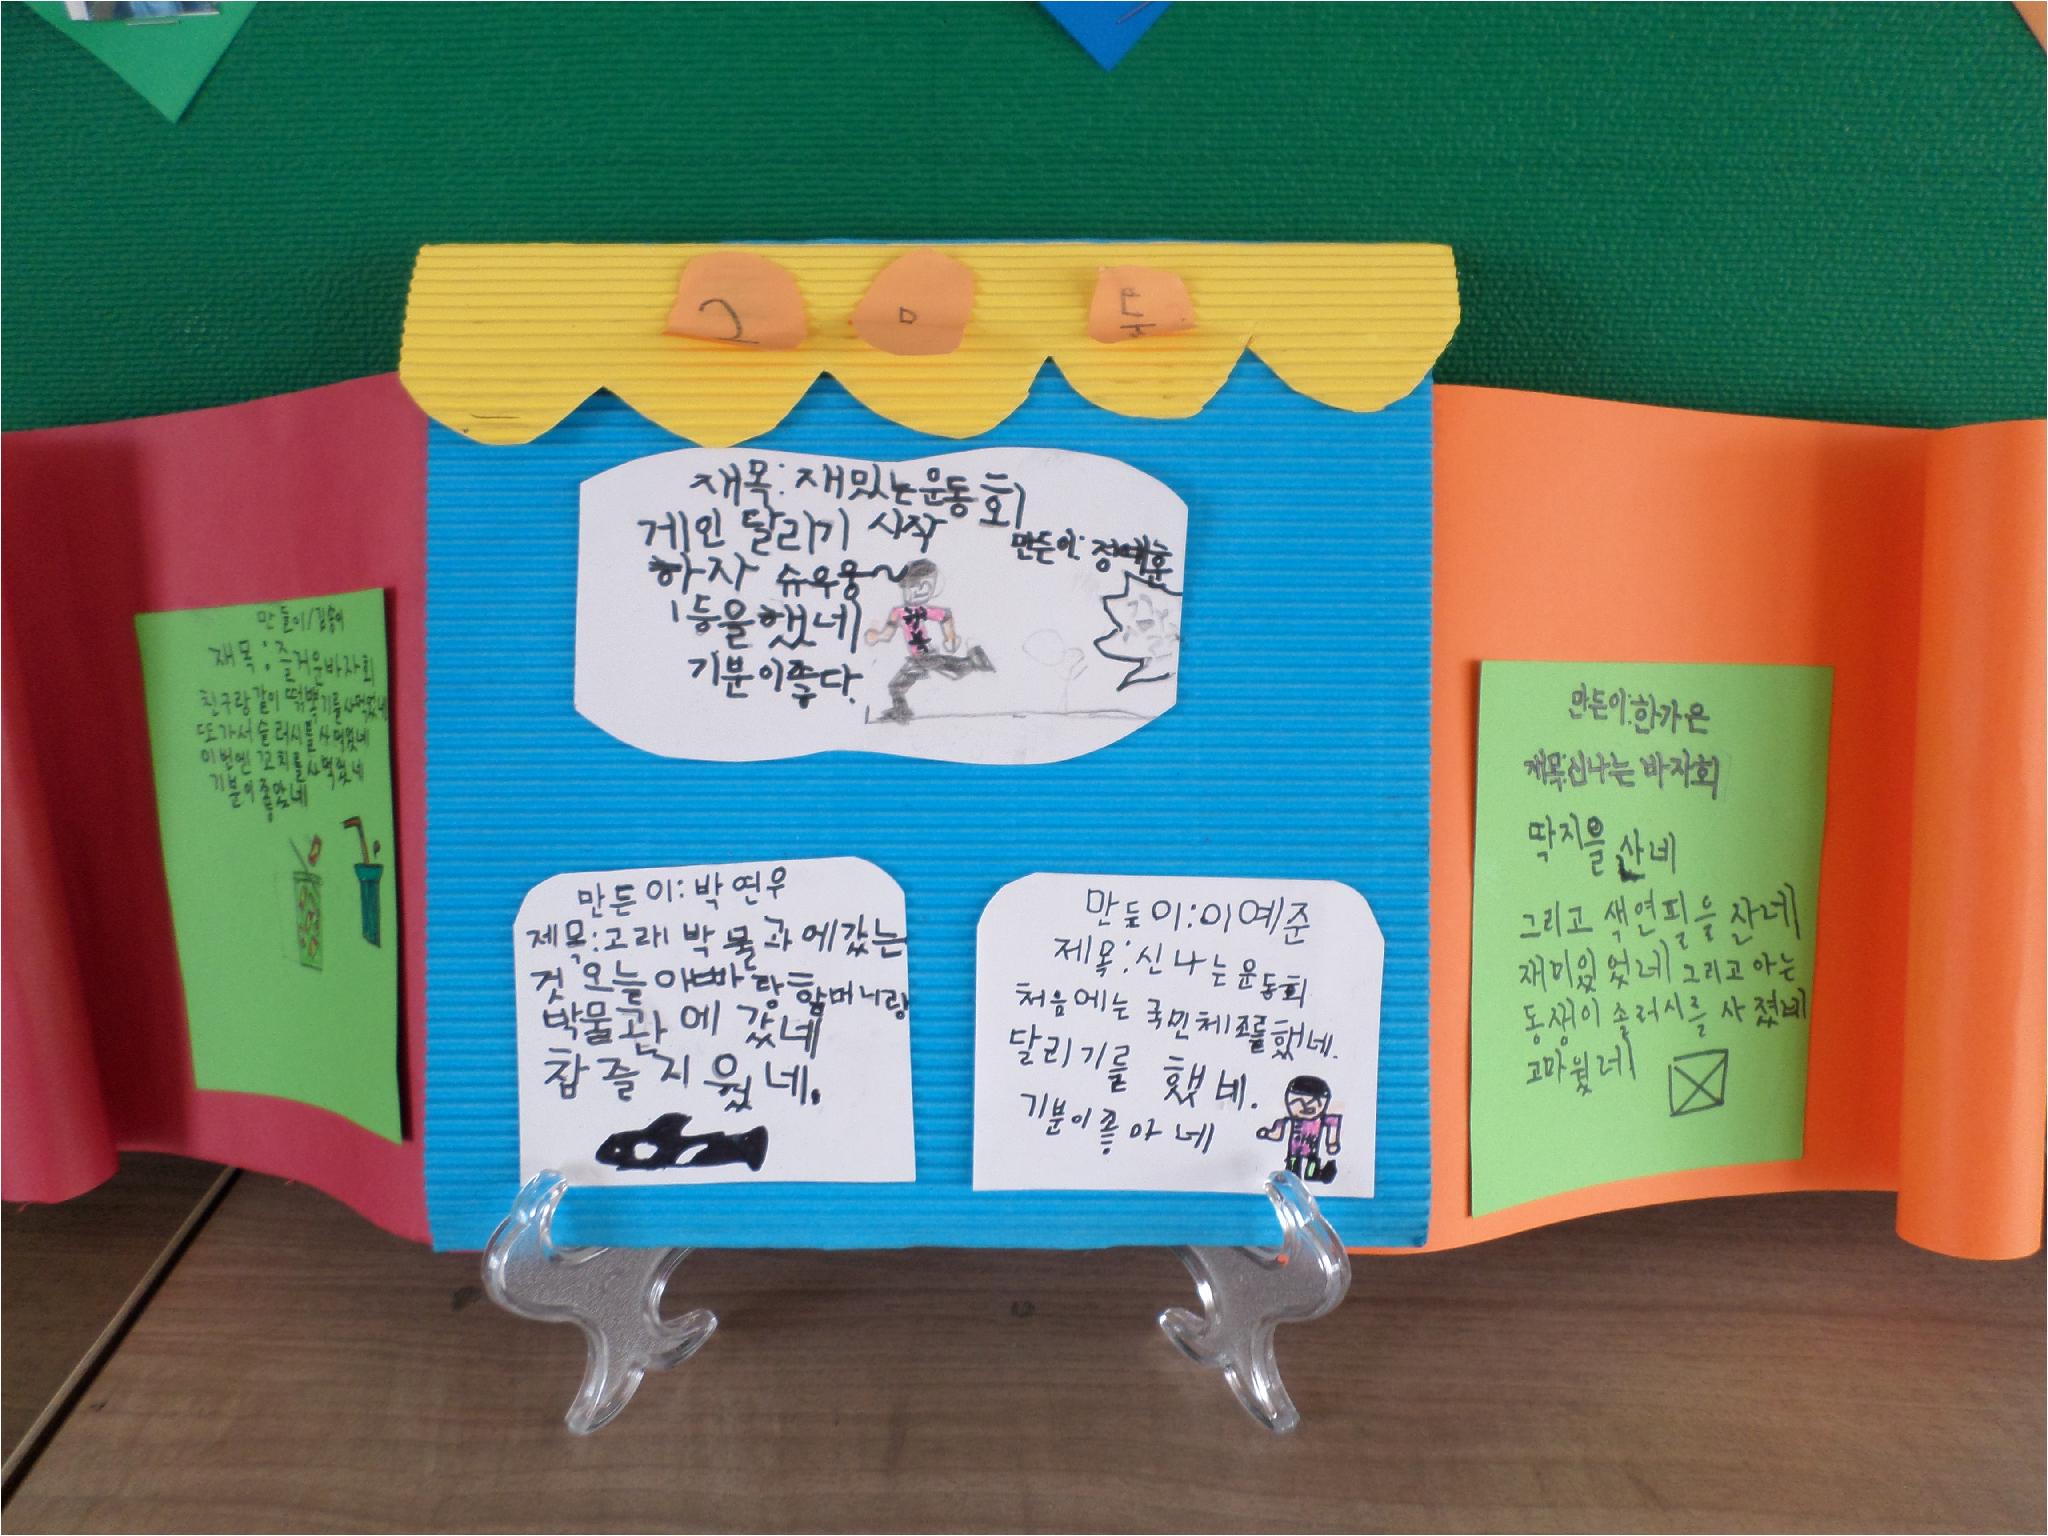 ㄱ ㅁ 묻
만들이/김송이
재목:즐거운바자회
친구랑같이 떡뽁기를사먹었네
또가서슬러시를사먹었네
이번엔 꼬치를사먹었네
기분이좋았네
재목:재밌는운동회
게인 달리기 시작
만든이:정예훈
하자 슈우웅~
1등을했네
기분이좋다.
만든이:박연우
제목:고래 박물관에갔는
것 오늘 아빠랑할머니랑
박물관에 갔네
참 즐거웠네.
만들이:이예준
제목:신나는운동회
처음에는 국민체조를했네.
달리기를 했네.
기분이좋아네
만든이:한가은
재목:신나는 바자회
딱지를 산네
그리고 색연필을 산네
재미있었네 그리고 아는
동생이 슬러시를 사줬네
고마웠네